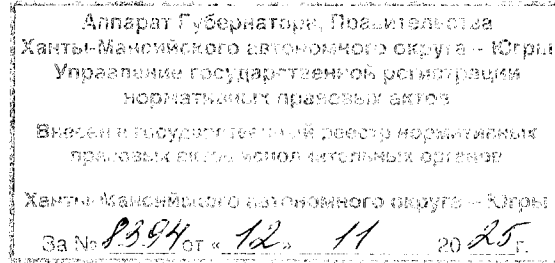 Аппарат Губернатора, Правительства
Ханты-Мансийского автономного округа – Югры
Управление государственной регистрации
нормативных правовых актов
Внесен в государственный реестр нормативных
правовых актов исполнительных органов
Ханты-Мансийского автономного округа – Югры
За № 8394 от « 12 » 11 20 25 г.